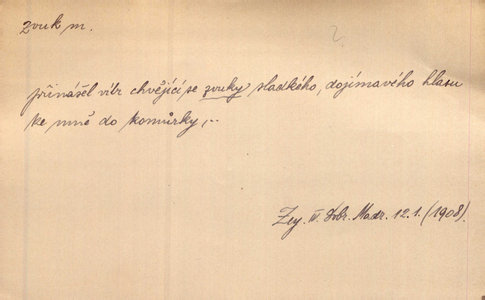 zvuk m.
2.
přinášel vítr chvějící se zvuky sladkého, dojímavého hlasu
ke mně do komůrky,..
Zey. IV. Dobr. Madr. 12.1. (1908).